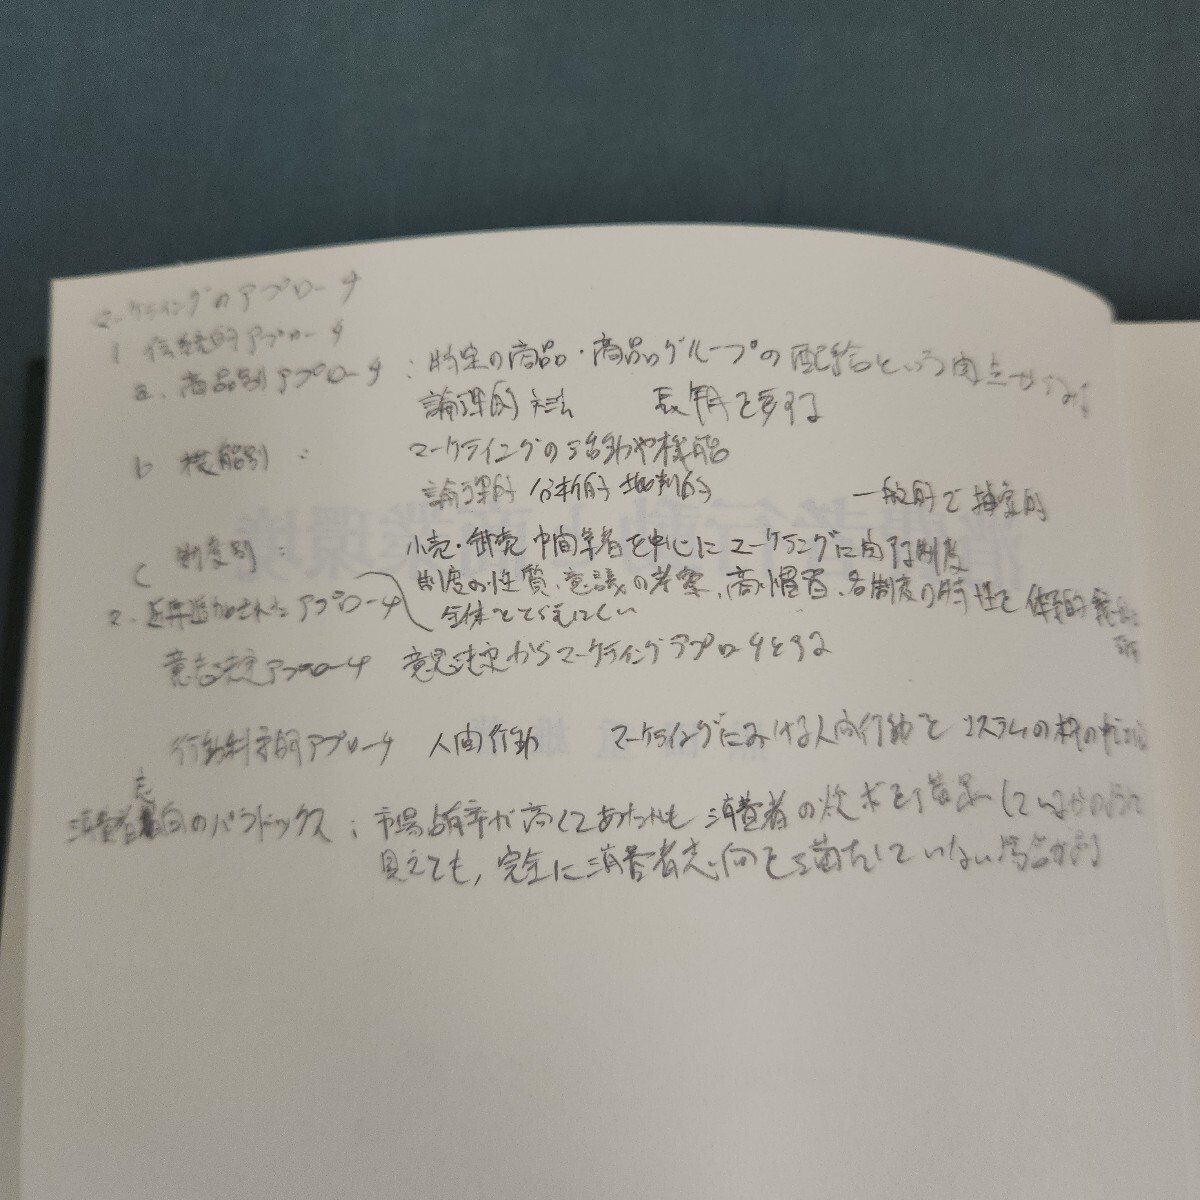 マーケティングのアプローチ
1 伝統的アプローチ
a. 商品別アプローチ : 特定の商品・商品グループの配給という
論理的 長期を要する
b 機能別 : マーケティングの活動や機能
論理的 分析的 批判的 一般的で
c 制度別 : 小売・卸売 中間業者を中心にマーケティングに 制度
制度の性質、意議の考察、商慣習、各制度の特性を 体系的
全体をとらえにくい
2. 近年追加されたアプローチ
意志決定アプローチ 意思決定からマーケティングアプローチとする
行動科学的アプローチ 人間行動 マーケティングにおける人間行動を システムの枠の中
消費者志向のパラドックス : 市場占有率が高くてあったも 消費者の
見えても, 完全に消費者志向を満たしていない場合がある
消費者行動と商業環境